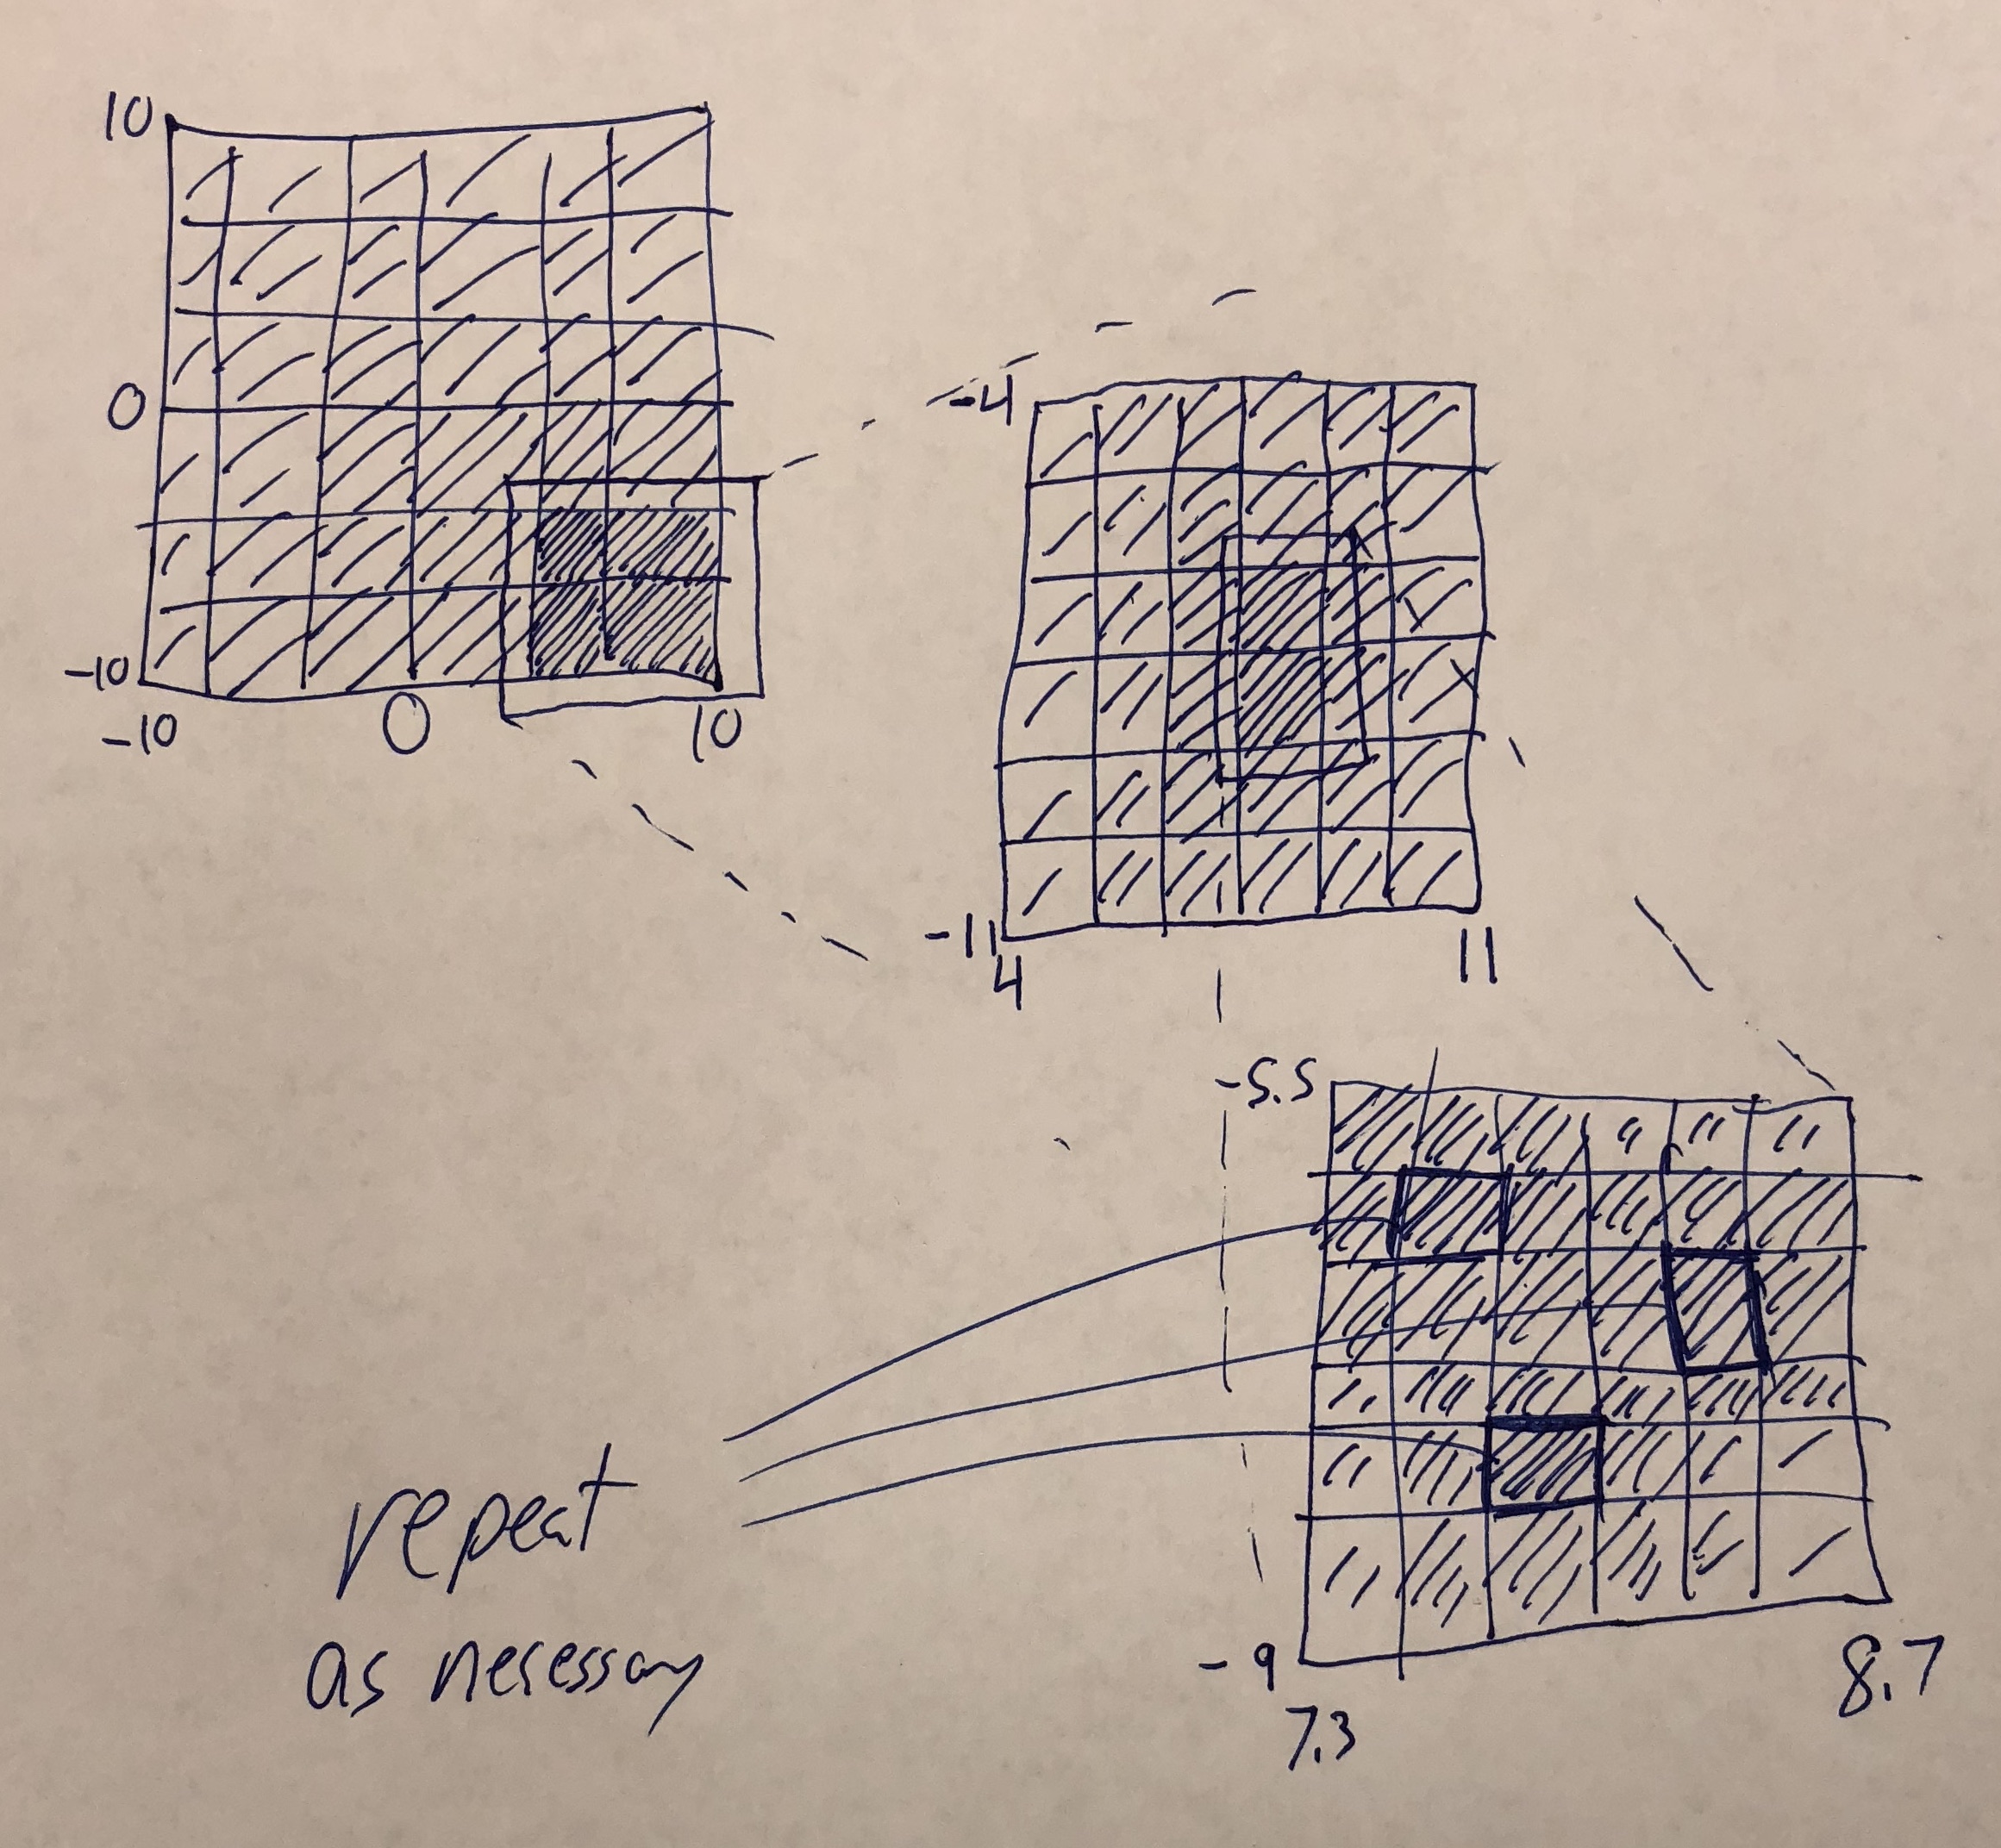 10
0
-10
-10 0 10
-4
-11
4 11
-5.5
-9
7.3 8.7
repeat
as necessary